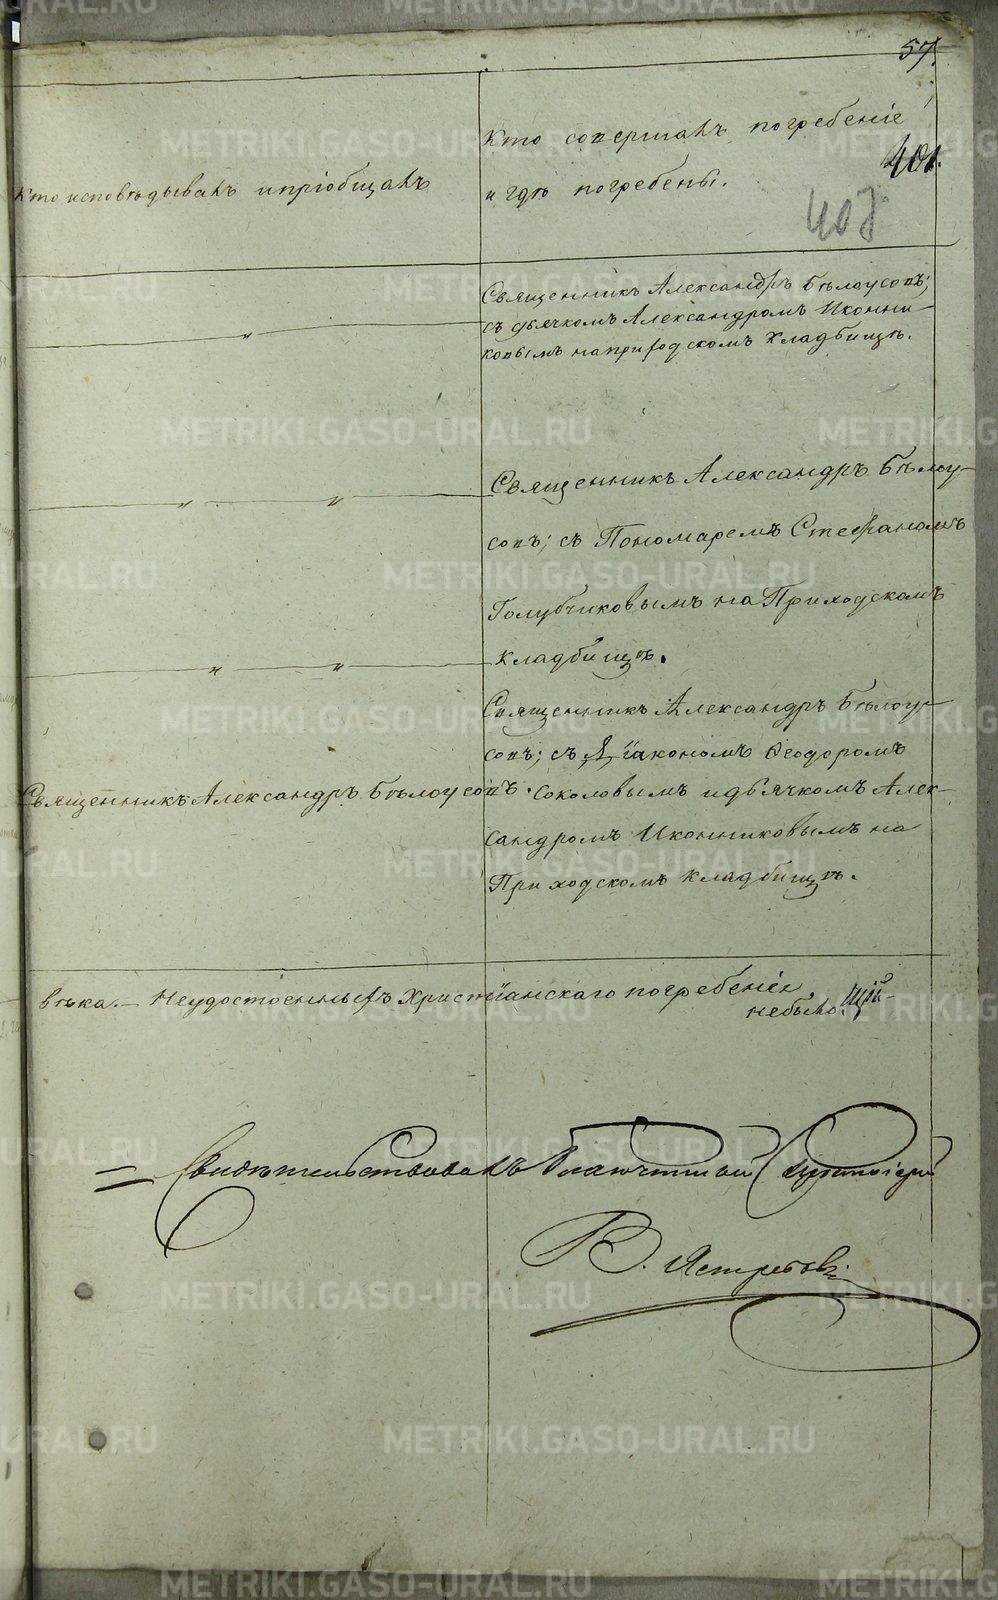 57.
401.
403
Кто исповѣдывалъ и пріобщалъ
Кто совершалъ погребеніе
и гдѣ погребены.
Священникъ Александръ Бѣлоусовъ;
съ дьячкомъ Александромъ Иконни-
ковымъ на приходскомъ кладбищѣ.
Священникъ Александръ Бѣлоу-
совъ; съ Пономаремъ Стефаномъ
Голубчиковымъ на Приходскомъ
кладбищѣ.
Священникъ Александръ Бѣлоусовъ.
Священникъ Александръ Бѣлоу-
совъ; съ Діакономъ Ѳеодоромъ
Соколовымъ и дьячкомъ Алек-
сандромъ Иконниковымъ на
Приходскомъ кладбищѣ.
вѣка. — Неудостоенныхъ Христіанскаго погребенія
небыло.
Свидѣтельствовалъ Благочинный
В. Ястребовъ
METRIKI.GASO-URAL.RU